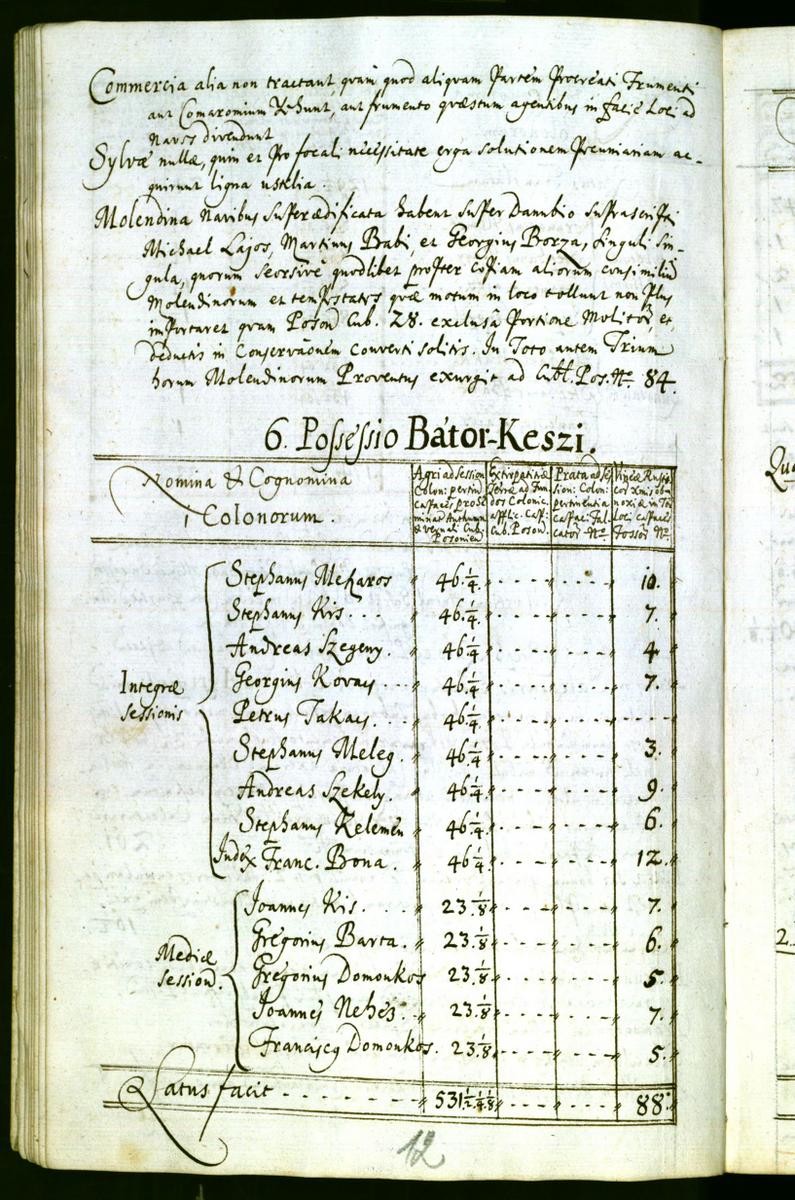 Commercia alia non tractant, quam quod aliquam Partem Procreati Frumenti
aut Comaromium Vehunt, aut frumento quæstum agentibus in facie Loci ad
Naves divendunt
Sylvæ nullæ, quin et Pro focali necessitate erga solutionem Pecuniariam ac-
quirunt ligna ustilia.
Molendina Navibus superædificata habent super Danubio suprascripti
Michael Lajos, Martinus Babi, et Georgius Borza, singuli sin-
gula, quorum seorsive quodlibet propter copiam aliorum consimiliũ
Molendinorum et tempestates quæ motum in loco tollunt non Plus
importaret quam Poson Cub. 28. exclusâ Portione Molitor, et
deductis in Conservãonem converti solitis. In Toto autem Trium
horum Molendinorum Proventus exurgit ad Cubl. Pos. No. 84.
6. Possessio Bátor-Keszi.
Nomina & Cognomina Colonorum.
Agri ad Session Coloni: pertin capaces pro se minat. Authumn & vernali Cub. Posonien
Extirpatitiæ Terræ ad Fundos Colonic. applic. Cap: Cub. Poson.
Prata ad Session: Colon: pertinentia capac. Falcator. No.
Vineæ Rustic cor Xmis obnoxiæ in Toti Loci capaces Fossor No.
Integræ Sessionis
Stephanus Meszaros 46.1/4. 〃 - - - - 〃 - - - - 〃 10.
Stephanus Kis. . . 46.1/4. 〃 - - - - 〃 - - - - 〃 7.
Andreas Szegeny. 46.1/4. 〃 - - - - 〃 - - - - 〃 4.
Georgius Kovacs . . . 46.1/4. 〃 - - - - 〃 - - - - 〃 7.
Petrus Takacs. . . 46.1/4. 〃 - - - - 〃 - - - - 〃 - - - -
Stephanus Meleg. 46.1/4. 〃 - - - - 〃 - - - - 〃 3.
Andreas Szekely. 46.1/4. 〃 - - - - 〃 - - - - 〃 9.
Stephanus Kelemen 46.1/4. 〃 - - - - 〃 - - - - 〃 6.
Judex Franc. Bona. 46.1/4. 〃 - - - - 〃 - - - - 〃 12.
Mediæ Session.
Joannes Kis. . . . 23.1/8. 〃 - - - - 〃 - - - - 〃 7.
Gregorius Barta. 23.1/8. 〃 - - - - 〃 - - - - 〃 6.
Gregorius Domonkos 23.1/8. 〃 - - - - 〃 - - - - 〃 5.
Joannes Nehez. . 23.1/8. 〃 - - - - 〃 - - - - 〃 7.
Franciscus Domonkos. 23.1/8. 〃 - - - - 〃 - - - - 〃 5.
Latus facit - - - - - - - 531 1/2.1/4.1/8. 〃 - - - - 〃 - - - - 〃 88.
12